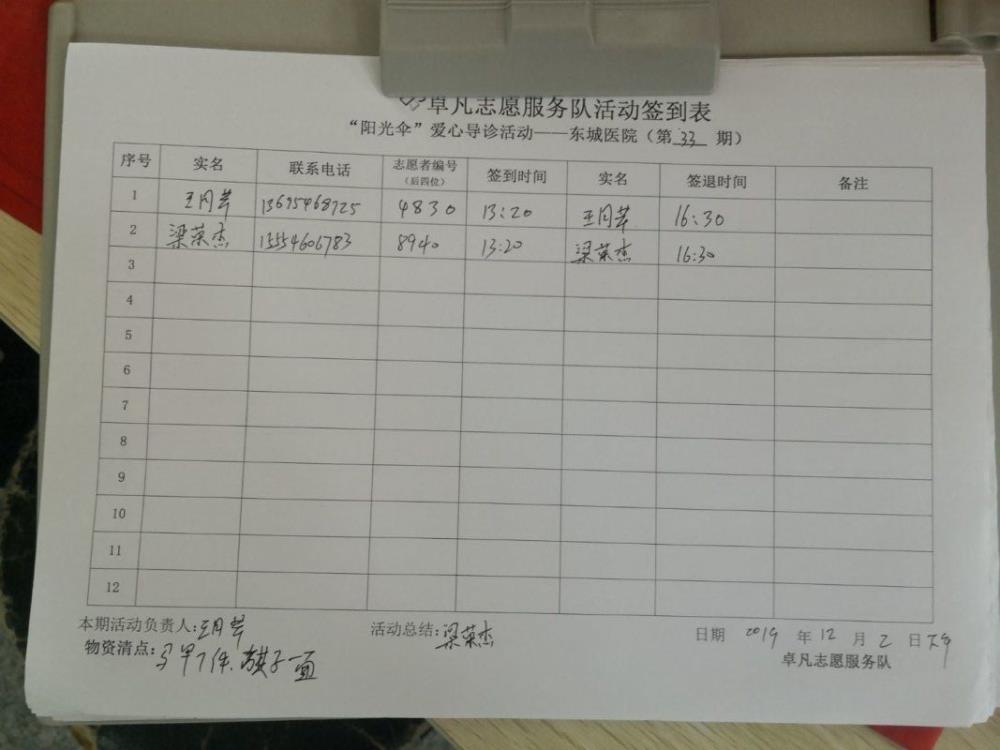 卓凡志愿服务队活动签到表
“阳光伞”爱心导诊活动——东城医院（第 33 期）
序号 实名 联系电话 志愿者编号（后四位） 签到时间 实名 签退时间 备注
1 王月苹 13695468725 4830 13:20 王月苹 16:30
2 梁荣杰 15554606783 8940 13:20 梁荣杰 16:30
3
4
5
6
7
8
9
10
11
12
本期活动负责人:王月苹 活动总结:梁荣杰 日期 2019 年 12 月 2 日 下午
物资清点:马甲7件、旗子一面 卓凡志愿服务队